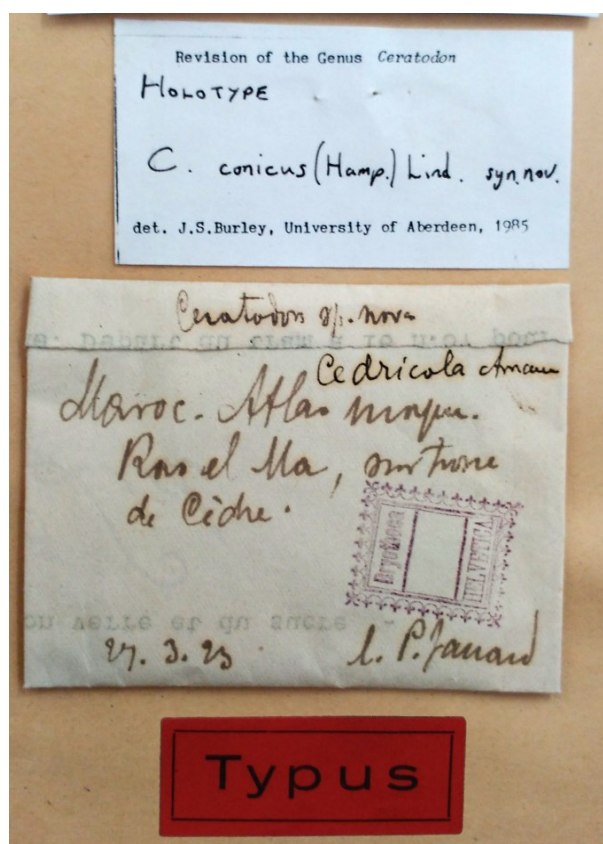 Revision of the Genus Ceratodon
HOLOTYPE
C. conicus (Hamp.) Lind. syn. nov.
det. J.S.Burley, University of Aberdeen, 1985
Ceratodon sp. nova
Cedricola Amann
Maroc. Atlas moyen.
Ras el Ma, sur tronc
de Cèdre.
Bryotheca
HELVETICA
27. 3. 23
l. P. Jaccard
Typus